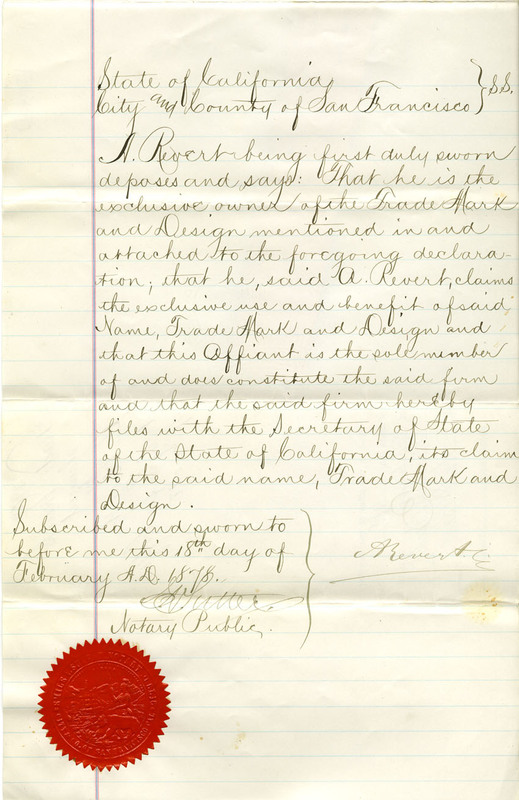 State of California } S.S.
City and County of San Francisco
A. Revert being first duly sworn
deposes and says: That he is the
exclusive owner of the Trade Mark
and Design mentioned in and
attached to the foregoing declara-
tion; that he, said A. Revert, claims
the exclusive use and benefit of said
Name, Trade Mark and Design and
that this Affiant is the sole member
of and does constitute the said firm
and that the said firm hereby
files with the Secretary of State
of the State of California, its claim
to the said name, Trade Mark and
Design.
Subscribed and sworn to
before me this 18th day of
February A.D. 1878.
Notary Public.
A Revert